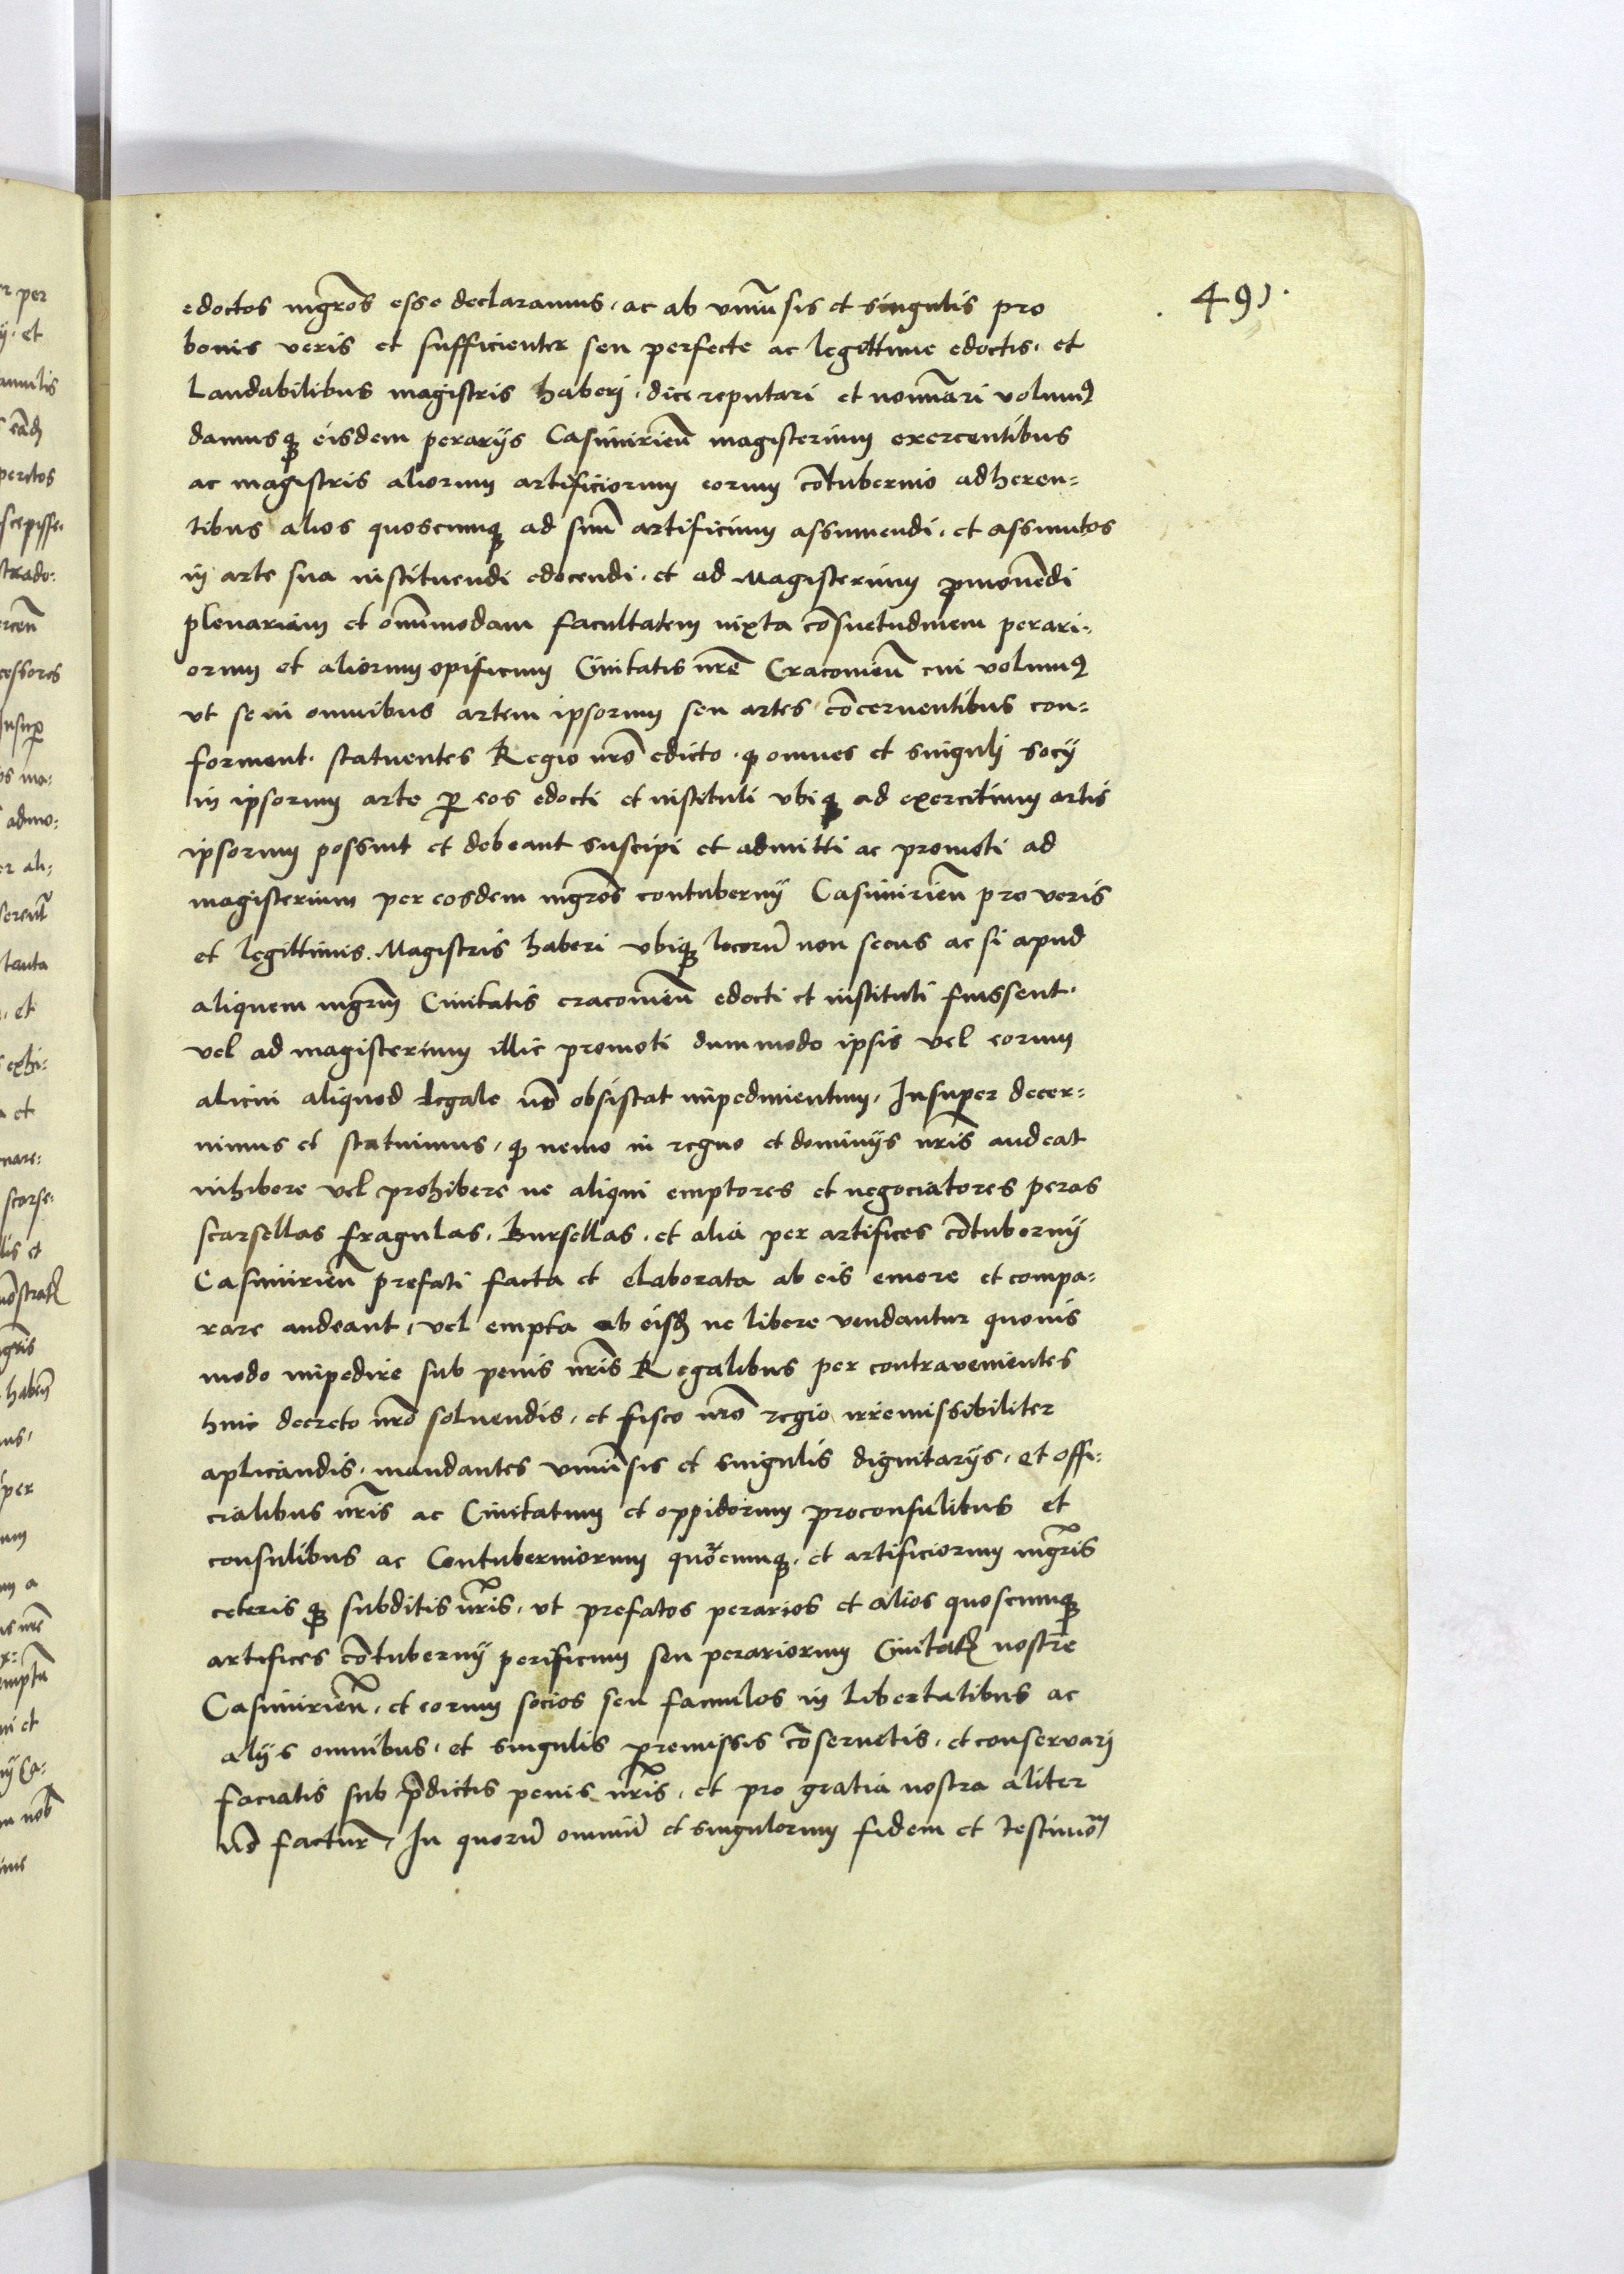 491.
edoctos mgr̃os esse declaramus, ac ab vniũsis et singulis pro
bonis veris et sufficienter seu perfecte ac legittime edoctis, et
Laudabilibus magistris haberj, dici reputari et nomĩari volumꝰ
damusqꝫ eisdem perarijs Casimirieñ magisterium exercentibus
ac magistris aliorum artificiorum eorum cõtubernio adheren=
tibus alios quoscumqꝫ ad suũ artificium assumendi, et assumtos
in arte sua instituendi edocendi, et ad Magisterium ꝓmouẽdi
plenariam et om̃imodam facultatem iuxta cõsuetudinem perari=
orum et aliorum opificum Ciuitatis nr̃e Cracouieñ cui volumꝰ
vt se in omnibus artem ipsorum seu artes cõcernentibus con=
forment. statuentes Regio nr̃o edicto. ꝙ omnes et singulj socij
in ipsorum arte ꝑ eos edocti et instituti vbiqꝫ ad exercitium artis
ipsorum possint et debeant suscipi et admitti ac promoti ad
magisterium per eosdem mgr̃os contubernij Casimirieñ pro veris
et legittimis Magistris haberi vbiqꝫ locorũ non secus ac si apud
aliquem mgr̃m Ciuitatis cracouieñ edocti et instituti fuissent.
vel ad magisterium illic promoti dummodo ipsis vel eorum
alicui aliquod legale nõ obsistat impedimentum, Insuper decer=
nimus et statuimus, ꝙ nemo in regno et dominijs nr̃is audeat
inhibere vel prohibere ne aliqui emptores et negociatores peras
scarsellas fragulas, Bursellas, et alia per artifices cõtubernij
Casimirieñ prefati facta et elaborata ab eis emere et compa=
rare audeant, vel empta ab eisdꝫ ne libere vendantur quouis
modo impedire sub penis nr̃is Regalibus per contravenientes
huic decreto nr̃o soluendis, et fisco nr̃o regio irremissibiliter
aplicandis, mandantes vniũsis et singulis dignitarijs, et offi=
cialibus nr̃is ac Ciuitatum et oppidorum proconsulibus et
consulibus ac Contuberniorum quoꝝcumqꝫ, et artificiorum mgr̃is
ceterisqꝫ subditis nr̃is, vt prefatos perarios et alios quoscumqꝫ
artifices cõtubernij perificum seu perariorum Ciuitatꝭ nostre
Casimirieñ, et eorum socios seu famulos in libertatibus ac
alijs omnibus, et singulis premissis cõseruetis, et conservarj
faciatis sub p̃dictis penis nr̃is, et pro gratia nostra aliter
nõ factur̃, In quorũ omniũ et singulorum fidem et testimõ